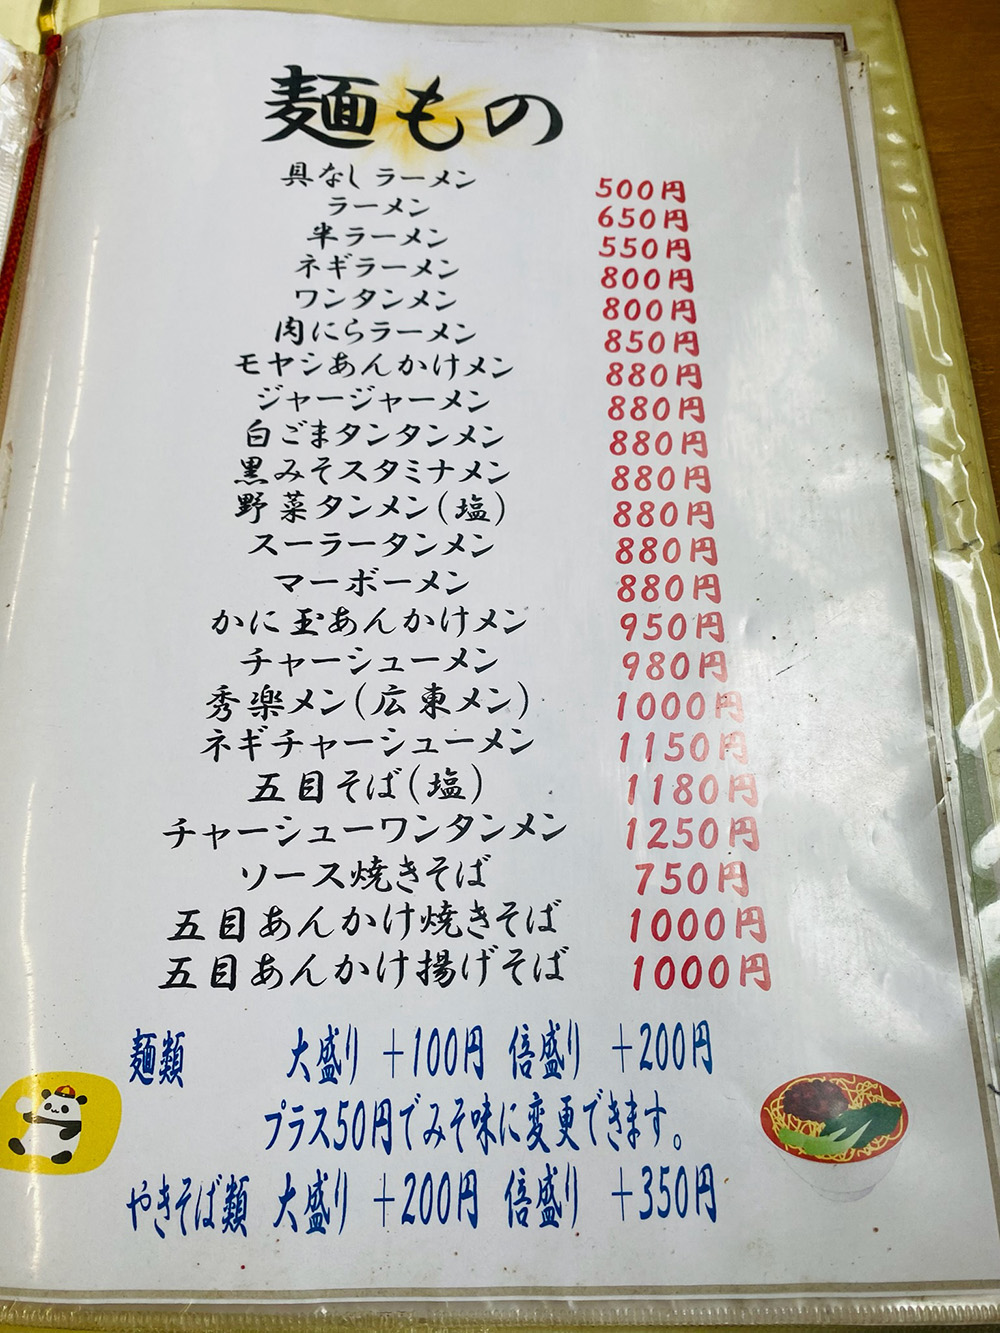 麺もの
具なしラーメン 500円
ラーメン 650円
半ラーメン 550円
ネギラーメン 800円
ワンタンメン 800円
肉にらラーメン 850円
モヤシあんかけメン 880円
ジャージャーメン 880円
白ごまタンタンメン 880円
黒みそスタミナメン 880円
野菜タンメン(塩) 880円
スーラータンメン 880円
マーボーメン 880円
かに玉あんかけメン 950円
チャーシューメン 980円
秀樂メン(広東メン) 1000円
ネギチャーシューメン 1150円
五目そば(塩) 1180円
チャーシューワンタンメン 1250円
ソース焼きそば 750円
五目あんかけ焼きそば 1000円
五目あんかけ揚げそば 1000円
麺類 大盛り +100円 倍盛り +200円
プラス50円でみそ味に変更できます。
やきそば類 大盛り +200円 倍盛り +350円